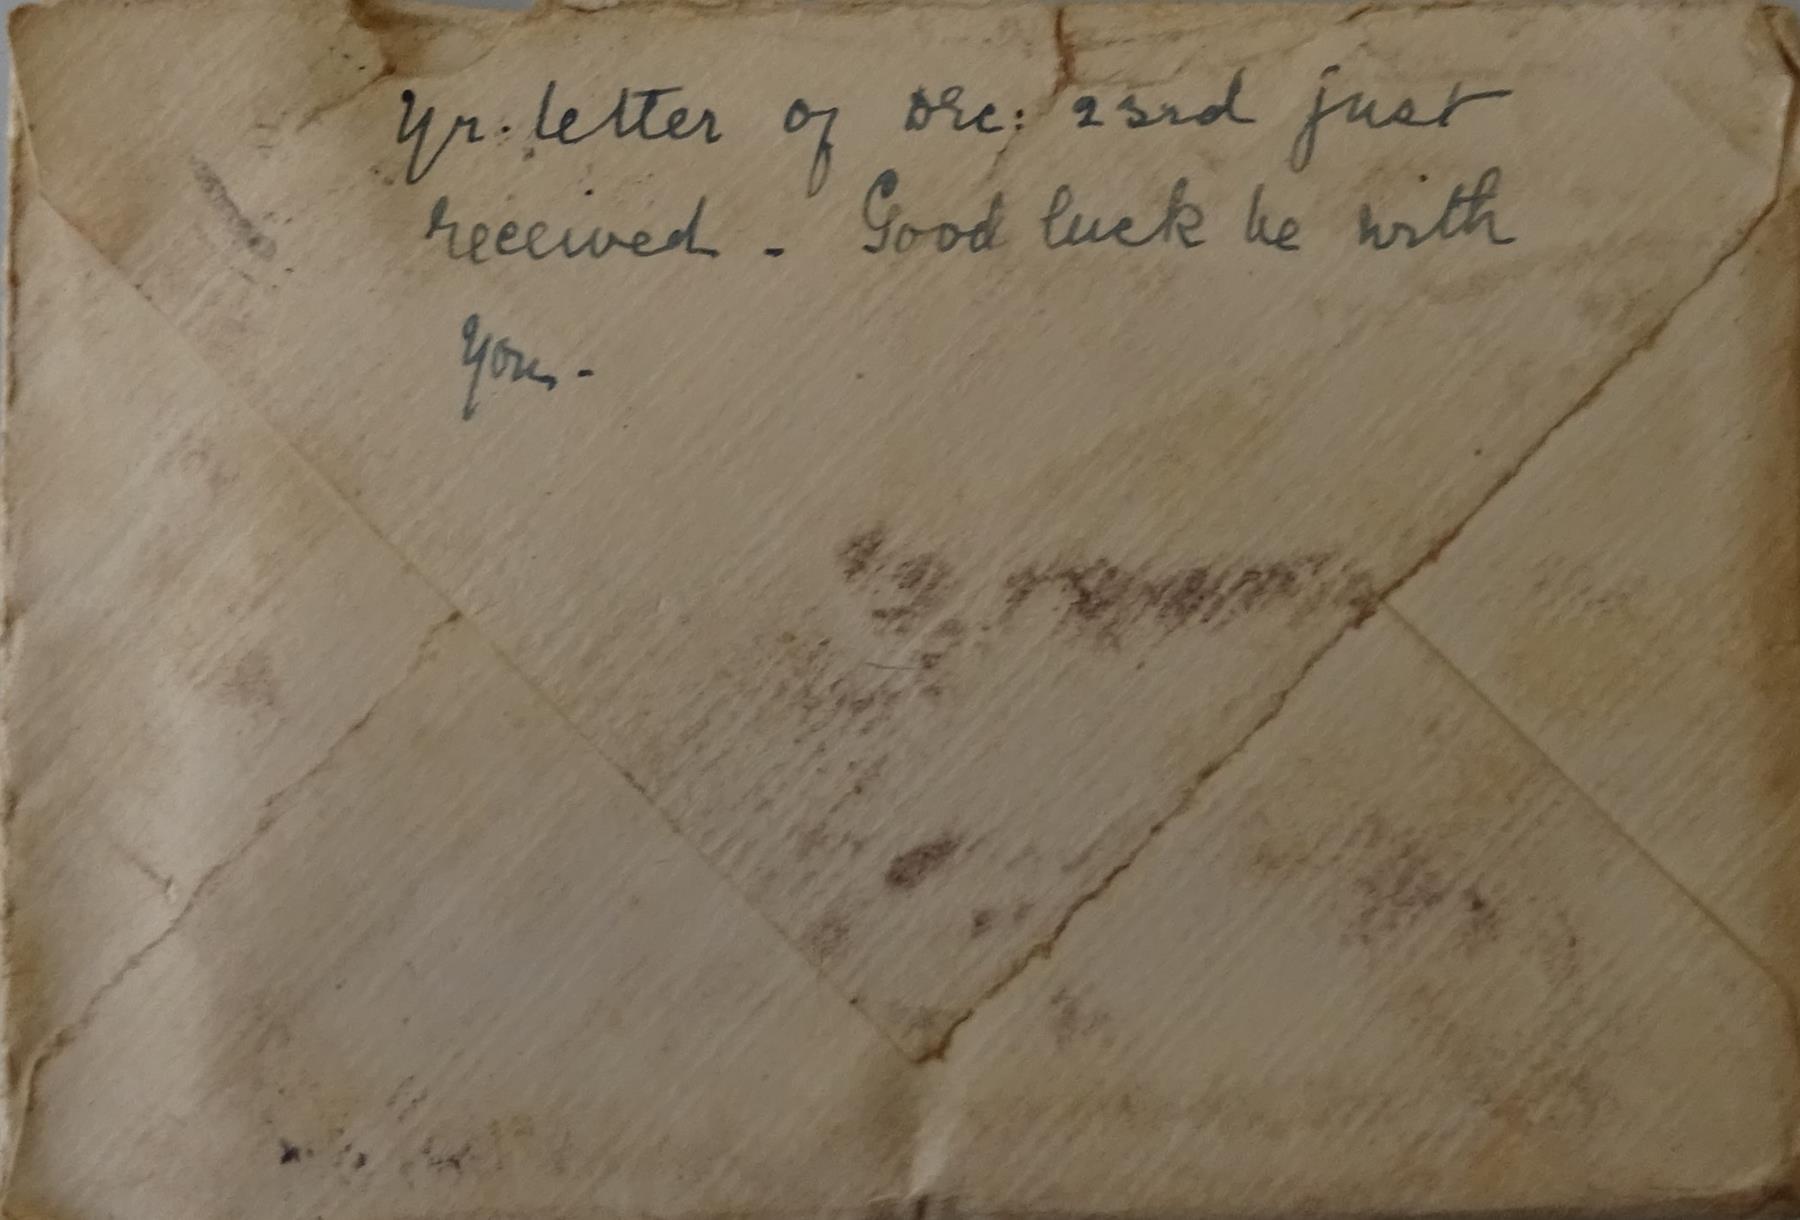 Yr. letter of Dec: 23rd just
received - Good luck be with
you -